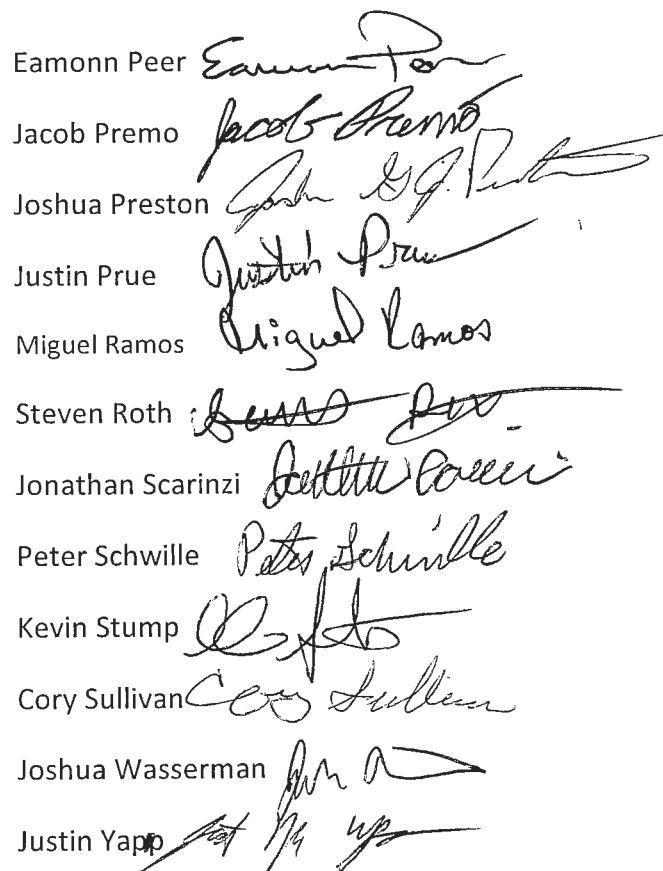 Eamonn Peer Eamonn Peer
Jacob Premo Jacob Premo
Joshua Preston Josh G J. Preston
Justin Prue Justin Prue
Miguel Ramos Miguel Ramos
Steven Roth
Jonathan Scarinzi
Peter Schwille Peter Schwille
Kevin Stump
Cory Sullivan Cory Sullivan
Joshua Wasserman Josh
Justin Yapp